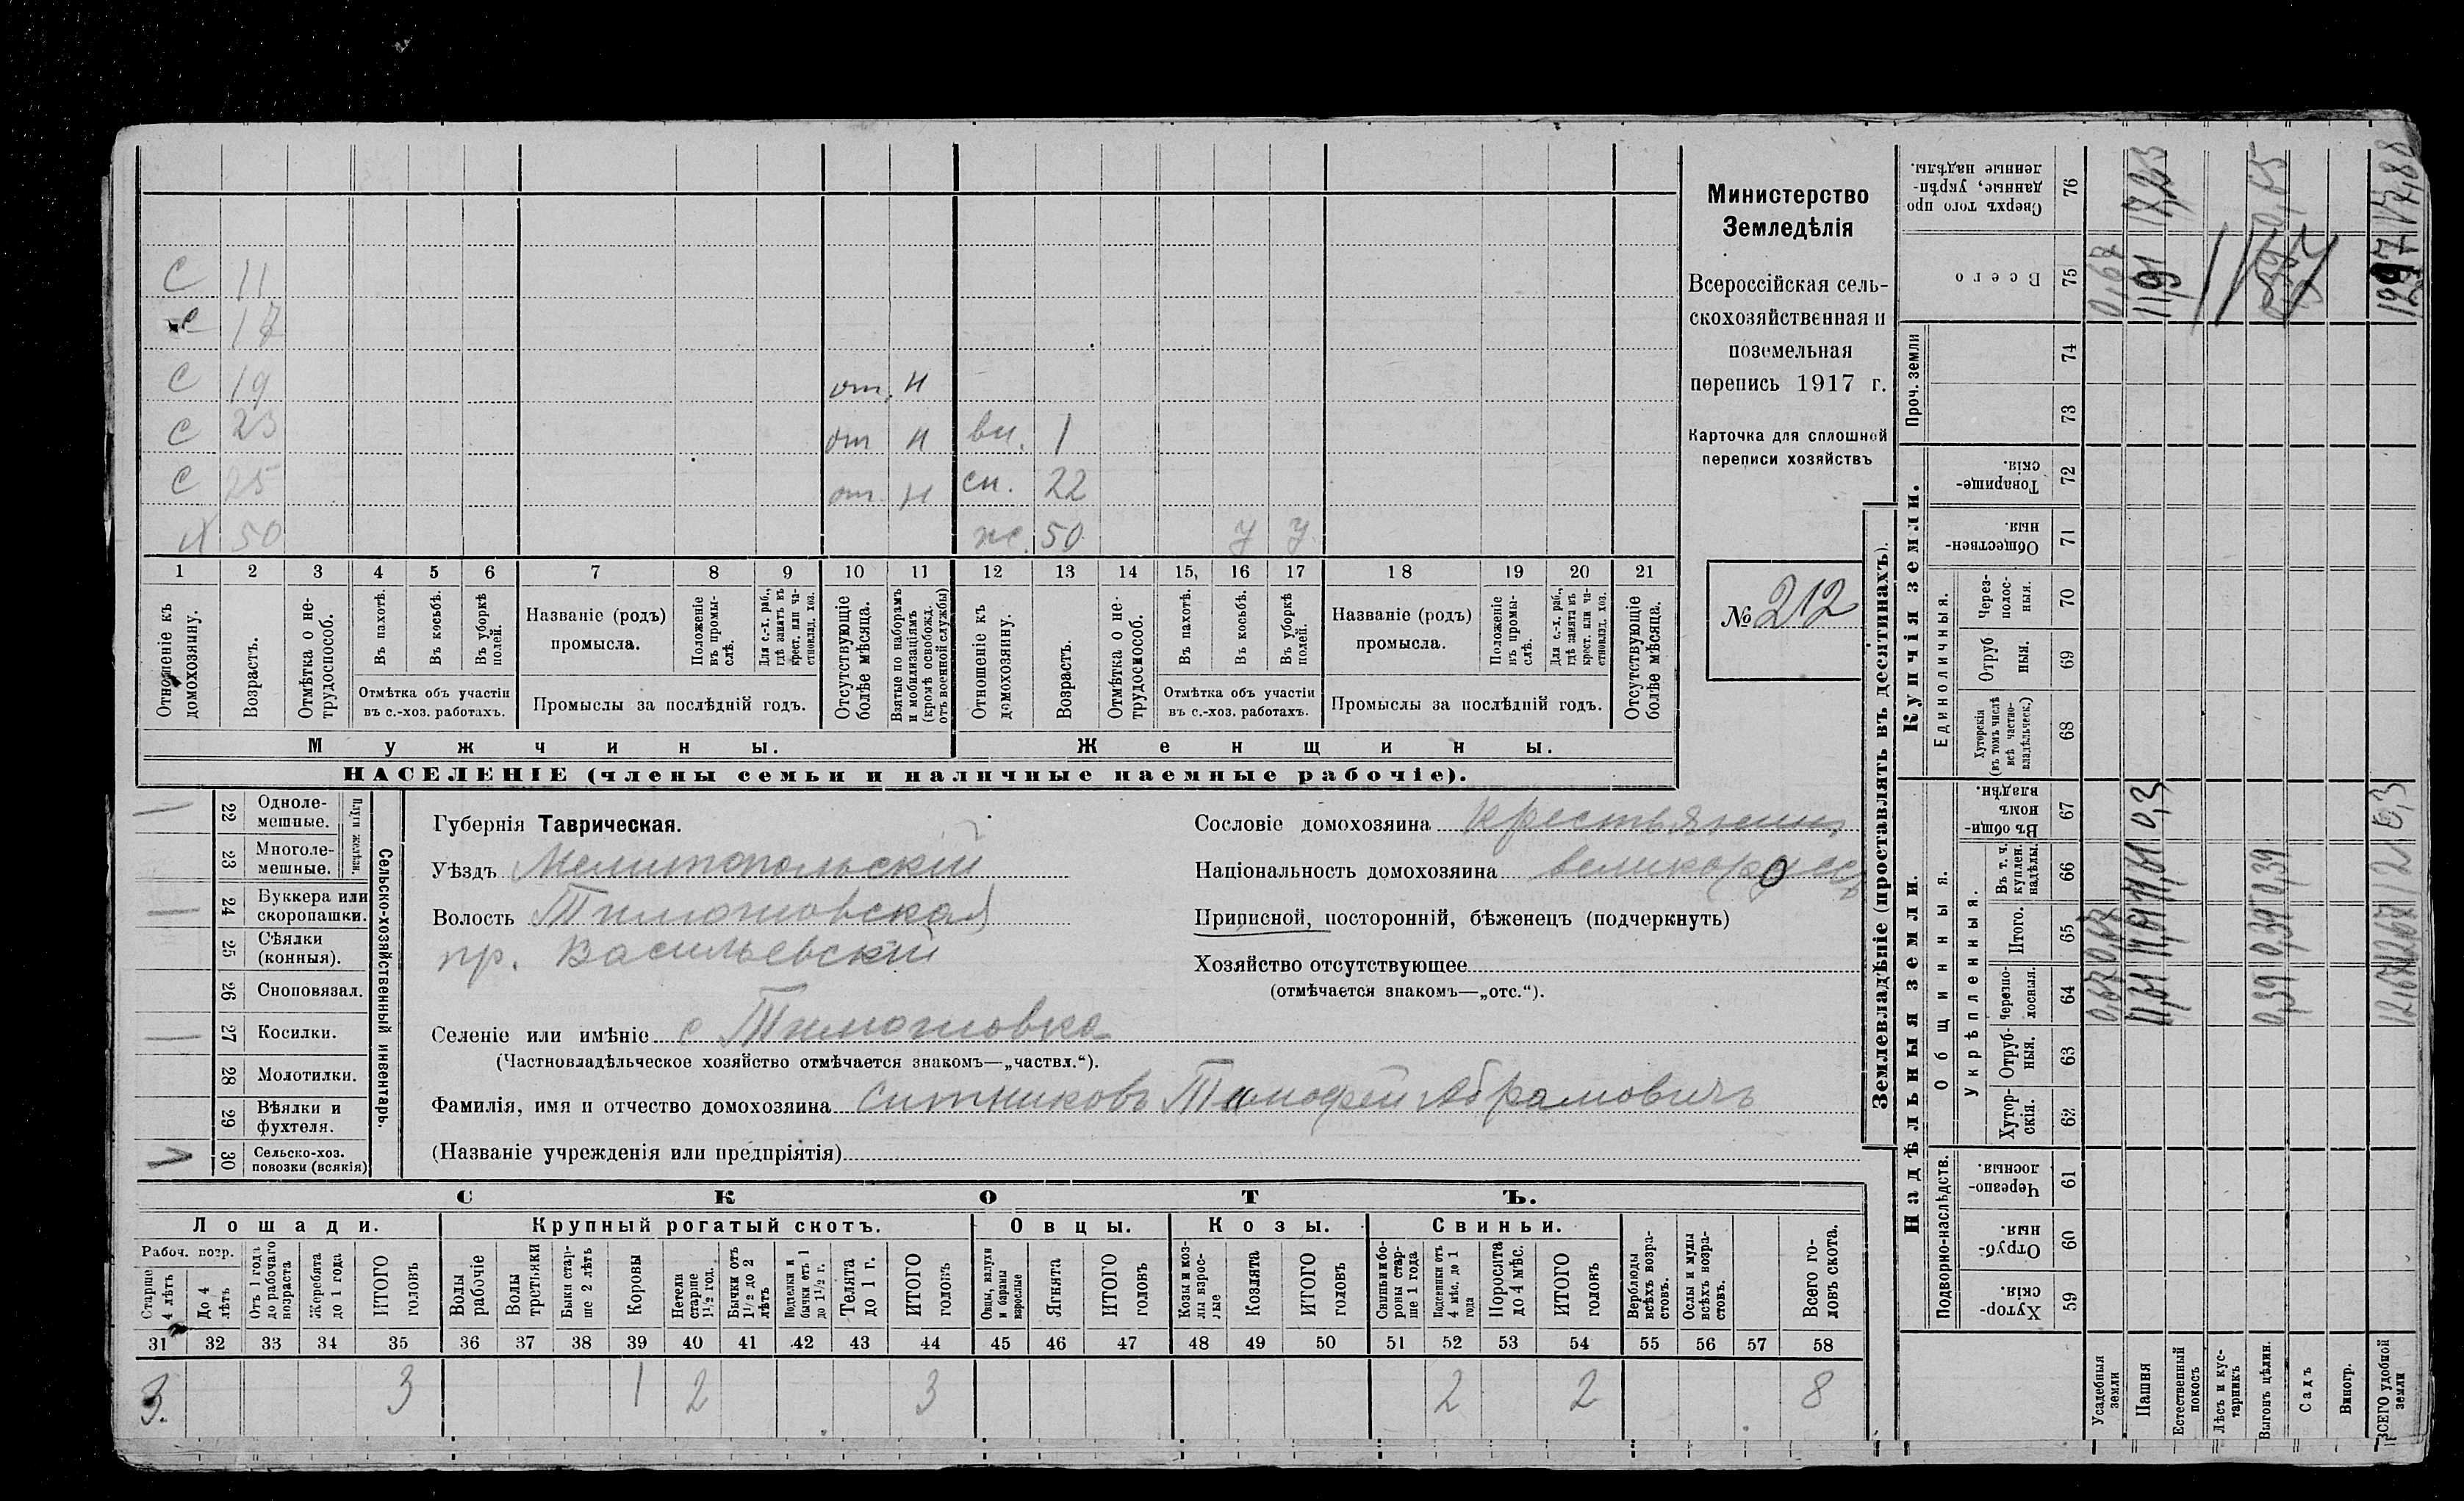 С 11
с 17
С 19 от. н
С 23 от н вн. 1
С 25 от. н сн. 22
Х 50 ж. 50 У У
1 2 3 4 5 6 7 8 9 10 11 12 13 14 15, 16 17 18 19 20 21
Отношеніе къ домохозяину.
Возрастъ.
Отмѣтка о не-трудоспособ.
Въ пахотѣ.
Въ косьбѣ.
Въ уборкѣ полей.
Отмѣтка объ участіи
въ с.-хоз. работахъ.
Названіе (родъ)
промысла.
Положеніе въ промы-слѣ.
Для с.-х. раб., гдѣ занятъ въ крест. или ча-стновлад. хоз.
Промыслы за послѣдній годъ.
Отсутствующіе болѣе мѣсяца.
Взятые по наборамъ и мобилизаціямъ (кромѣ освобожд. отъ военной службы)
Отношеніе къ домохозяину.
Возрастъ.
Отмѣтка о не-трудоспособ.
Въ пахотѣ.
Въ косьбѣ.
Въ уборкѣ полей.
Отмѣтка объ участіи
въ с.-хоз. работахъ.
Названіе (родъ)
промысла.
Положеніе въ промы-слѣ.
Для с.-х. раб., гдѣ занята въ крест. или ча-стновлад. хоз.
Промыслы за послѣдній годъ.
Отсутствующіе болѣе мѣсяца.
Мужчины. Женщины.
НАСЕЛЕНІЕ (члены семьи и наличные наемные рабочіе).
Министерство
Земледѣлія
Всероссійская сель-
скохозяйственная и
поземельная
перепись 1917 г.
Карточка для сплошной
переписи хозяйствъ
№ 212
22 Одноле-мешные.
23 Многоле-мешные.
Плуги желѣзн.
24 Буккера или скоропашки.
25 Сѣялки (конныя).
26 Сноповязал.
27 Косилки.
28 Молотилки.
29 Вѣялки и фухтеля.
30 Сельско-хоз. повозки (всякія)
Сельско-хозяйственный инвентарь.
Губернія Таврическая.
Уѣздъ Мелитопольскій
Волость Тимошовская
пр. Васильевскій
Селеніе или имѣніе с Тимошовка
(Частновладѣльческое хозяйство отмѣчается знакомъ—„частвл.“).
Фамилія, имя и отчество домохозяина Ситниковъ Тимофей Абрамовичъ
(Названіе учрежденія или предпріятія)
Сословіе домохозяина крестьянин
Національность домохозяина великоросъ
Приписной, посторонній, бѣженецъ (подчеркнуть)
Хозяйство отсутствующее
(отмѣчается знакомъ—„отс.“).
СКОТЪ.
Лошади. Крупный рогатый скотъ. Овцы. Козы. Свиньи.
Рабоч. возр.
Старше 4 лѣтъ
До 4 лѣтъ
Отъ 1 года до рабочаго возраста
Жеребята до 1 года
ИТОГО головъ
Волы рабочіе
Волы третьяки
Быки стар-ше 2 лѣтъ
Коровы
Нетели старше 1½ год.
Бычки отъ 1½ до 2 лѣтъ
Подтелки и бычки отъ 1 до 1½ г.
Телята до 1 г.
ИТОГО головъ
Овцы, валухи и бараны взрослые
Ягнята
ИТОГО головъ
Козы и коз-лы взрос-лые
Козлята
ИТОГО головъ
Свиньи и бо-ровы стар-ше 1 года
Подсвинки отъ 4 мѣс. до 1 года
Поросята до 4 мѣс.
ИТОГО головъ
Верблюды всѣхъ возра-стовъ.
Ослы и мулы всѣхъ возра-стовъ.
Всего го-ловъ скота.
31 32 33 34 35 36 37 38 39 40 41 42 43 44 45 46 47 48 49 50 51 52 53 54 55 56 57 58
3. 3 1 2 3 2 2 8
Землевладѣніе (проставлять въ десятинахъ).
Сверхъ того про данные, укрѣп-ленные надѣлы. 76
Всего 75
Проч. земли
74
73
Купчія земли.
Товарище-скія. 72
Обществен-ныя. 71
Единоличныя.
Через-полос-ныя. 70
Отруб ныя. 69
Хуторскія (въ томъ числѣ всѣ частно-владѣльческ.) 68
Надѣльныя земли.
Общинныя.
Въ общи-номъ владѣн. 67
Укрѣпленныя.
Въ т. ч. куплен. надѣлы. 66
Итого. 65
Черезпо-лосныя. 64
Отруб-ныя. 63
Хутор-скія. 62
Подворно-наслѣдств.
Черезпо-лосныя. 61
Отруб-ныя. 60
Хутор-скія. 59
Усадебныя земли 0,67 0,67 0,67
Пашня 11,61 11,61 11,61 0,3 11,91 17,23
Естественный покосъ
Лѣсъ и кус-тарникъ
Выгонъ цѣлин. 0,39 0,39 0,39 0,39
Садъ
Виногр.
ВСЕГО удобной земли 12,67 12,67 12 0,3 12,97